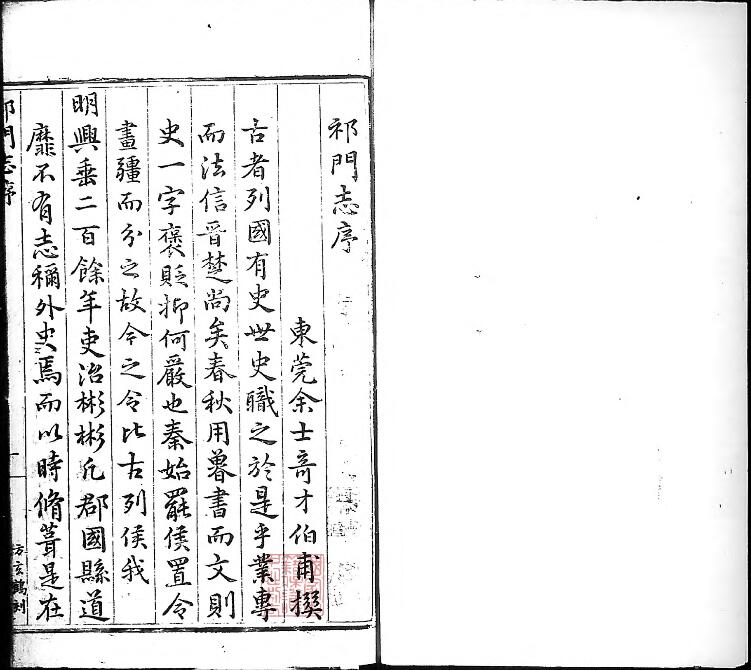 祁門志序
東莞余士奇才伯甫撰
古者列國有史世史職之於是乎業專
而法信晉楚尚矣春秋用魯書而文則
史一字褒貶抑何嚴也秦始罷侯置令
畫疆而分之故今之令比古列侯我
明興垂二百餘年吏治彬彬凡郡國縣道
靡不有志稱外史焉而以時脩葺是在
祁門志序
一